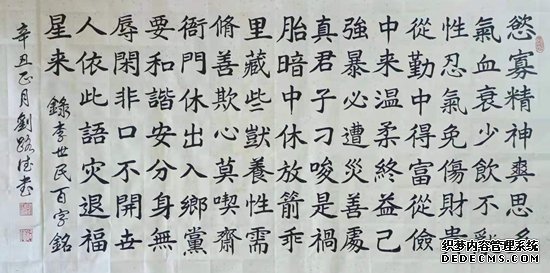 慾寡精神爽思多
氣血衰少飲不亂
性忍氣免傷財貴
從勤中得富從儉
中来温柔終益己
強暴必遭災善處
真君子刁唆是禍
胎暗中休放箭乖
里藏些獃養性需
脩善欺心莫喫齋
衙門休出入鄉黨
要和諧安分身無
辱閑非口不開世
人依此語灾退福
星来
錄李世民百字銘
辛丑正月劉路